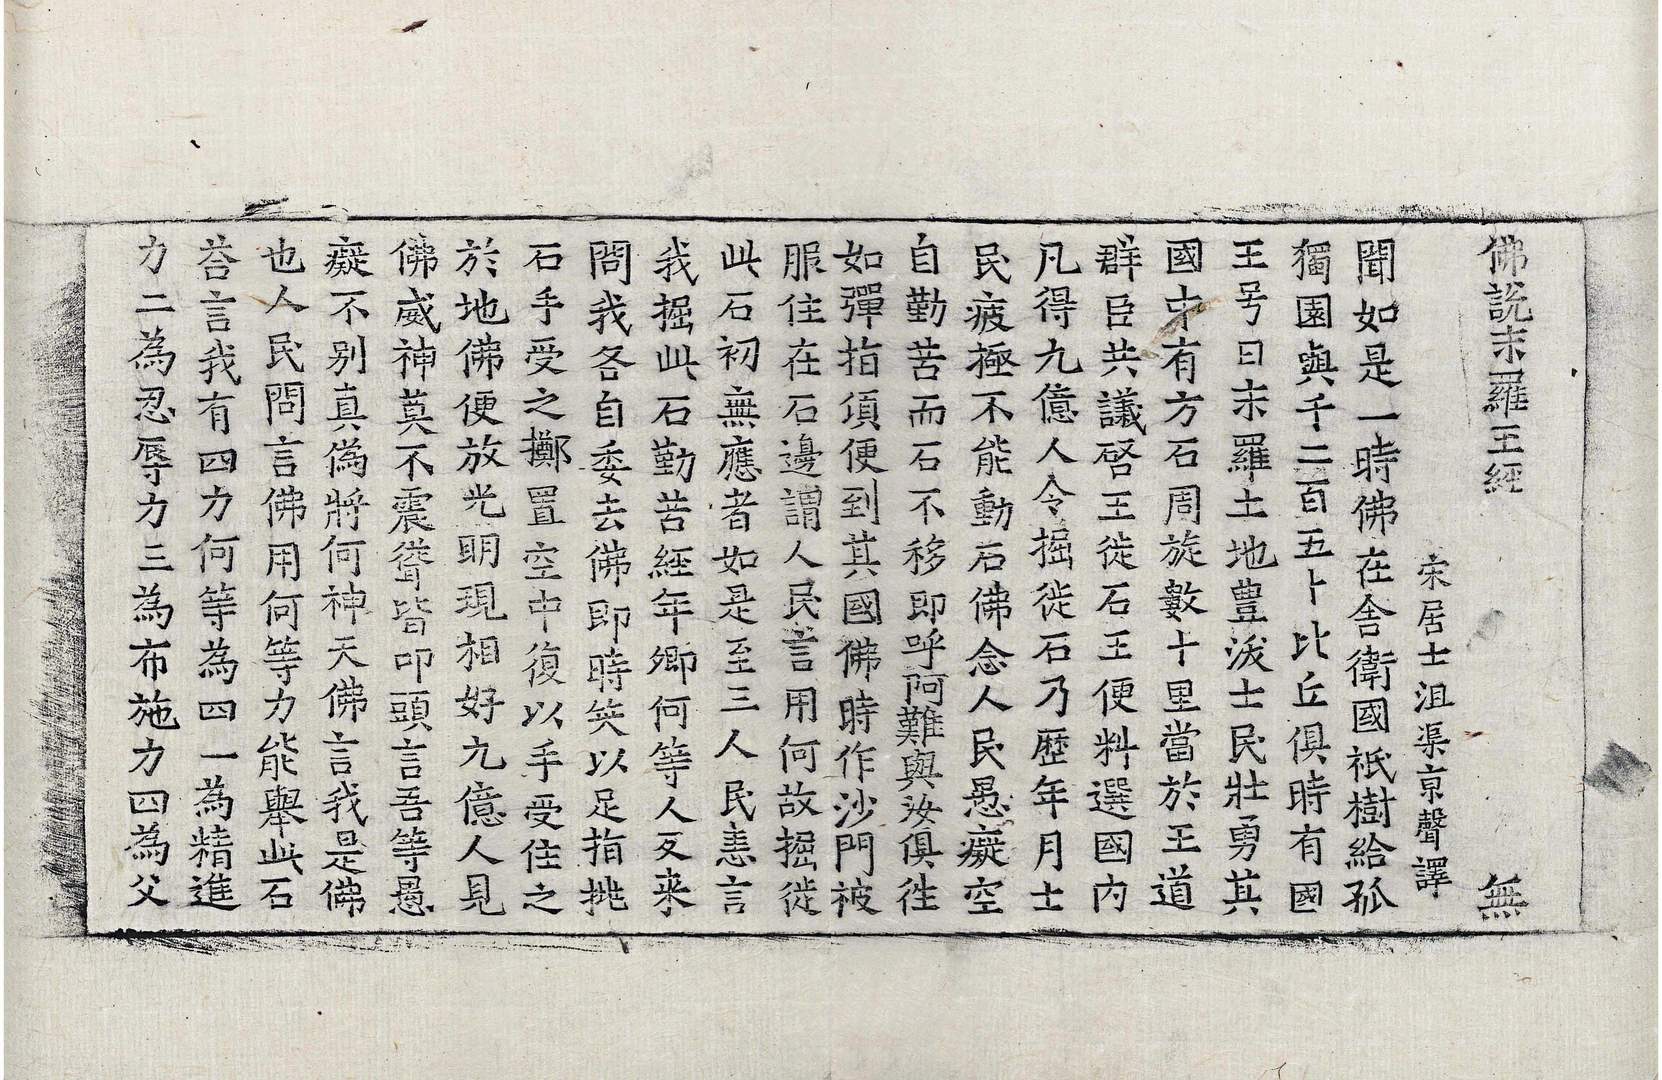 佛說末羅王經 無
宋居士沮渠京聲譯
聞如是一時佛在舍衛國祇樹給孤
獨園與千二百五十比丘俱時有國
王号曰末羅土地豊沃士民壮勇其
國中有方石周旋數十里當於王道
群臣共議啓王徙石王便料選國內
凡得九億人令掘徙石乃歷年月士
民疲極不能動石佛念人民愚癡空
自勤苦而石不移即呼阿難與汝俱徃
如彈指頃便到其國佛時作沙門被
服住在石邊謂人民言用何故掘徙
此石初無應者如是至三人民恚言
我掘此石勤苦經年卿何等人反来
問我各自委去佛即時笑以足指挑
石手受之擲置空中復以手受住之
於地佛便放光明現相好九億人見
佛威神莫不震聳皆叩頭言吾等愚
癡不別真偽將何神天佛言我是佛
也人民問言佛用何等力能舉此石
荅言我有四力何等為四一為精進
力二為忍辱力三為布施力四為父